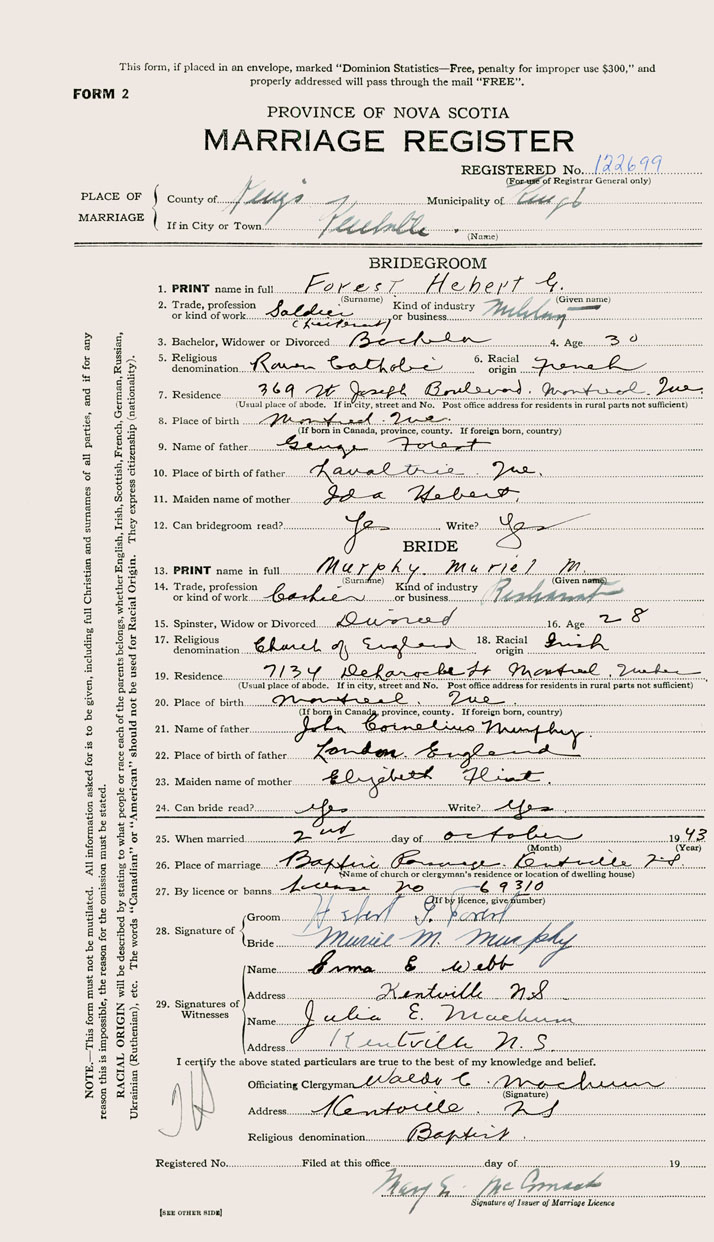 This form, if placed in an envelope, marked "Dominion Statistics—Free, penalty for improper use $300," and
properly addressed will pass through the mail "FREE".
FORM 2
PROVINCE OF NOVA SCOTIA
MARRIAGE REGISTER
REGISTERED No. 122699
(For use of Registrar General only)
PLACE OF MARRIAGE
County of Kings Municipality of Kings
If in City or Town Kentville
(Name)
BRIDEGROOM
1. PRINT name in full Forest Hebert G.
(Surname) (Given name)
2. Trade, profession or kind of work Soldier Kind of industry or business Military
3. Bachelor, Widower or Divorced Bachelor 4. Age 30
5. Religious denomination Roman Catholic 6. Racial origin French
7. Residence 369 St Joseph Boulevard. Montreal. Que.
(Usual place of abode. If in city, street and No. Post office address for residents in rural parts not sufficient)
8. Place of birth Montreal. Que.
(If born in Canada, province, county. If foreign born, country)
9. Name of father George Forest
10. Place of birth of father Lavaltrie Que.
11. Maiden name of mother Ida Hebert.
12. Can bridegroom read? Yes Write? Yes
BRIDE
13. PRINT name in full Murphy Muriel M.
(Surname) (Given name)
14. Trade, profession or kind of work Cashier Kind of industry or business Restaurant
15. Spinster, Widow or Divorced Divorced 16. Age 28
17. Religious denomination Church of England 18. Racial origin Irish
19. Residence 7134 Delaroche St Montreal. Quebec
(Usual place of abode. If in city, street and No. Post office address for residents in rural parts not sufficient)
20. Place of birth Montreal. Que.
(If born in Canada, province, county. If foreign born, country)
21. Name of father John Cornelius Murphy.
22. Place of birth of father London. England
23. Maiden name of mother Elizabeth Flint.
24. Can bride read? Yes Write? Yes
25. When married 2nd day of October 1943
(Month) (Year)
26. Place of marriage Baptist Parsonage. Kentville N.S.
(Name of church or clergyman's residence or location of dwelling house)
27. By licence or banns License no 69310
(If by licence, give number)
28. Signature of
Groom Hebert G. Forest
Bride Muriel M. Murphy
29. Signatures of Witnesses
Name Erma E Webb
Address Kentville NS
Name Julia E. Machum
Address Kentville N.S.
I certify the above stated particulars are true to the best of my knowledge and belief.
Officiating Clergyman Waldo C. Machum
(Signature)
Address Kentville. NS
Religious denomination Baptist.
Registered No. Filed at this office day of 19
Mary E. McCormack
Signature of Issuer of Marriage Licence
[SEE OTHER SIDE]
NOTE.—This form must not be mutilated. All information asked for is to be given, including full Christian and surnames of all parties, and if for any
reason this is impossible, the reason for the omission must be stated.
RACIAL ORIGIN will be described by stating to what people or race each of the parents belongs, whether English, Irish, Scottish, French, German, Russian,
Ukrainian (Ruthenian), etc. The words "Canadian" or "American" should not be used for Racial Origin. They express citizenship (nationality).